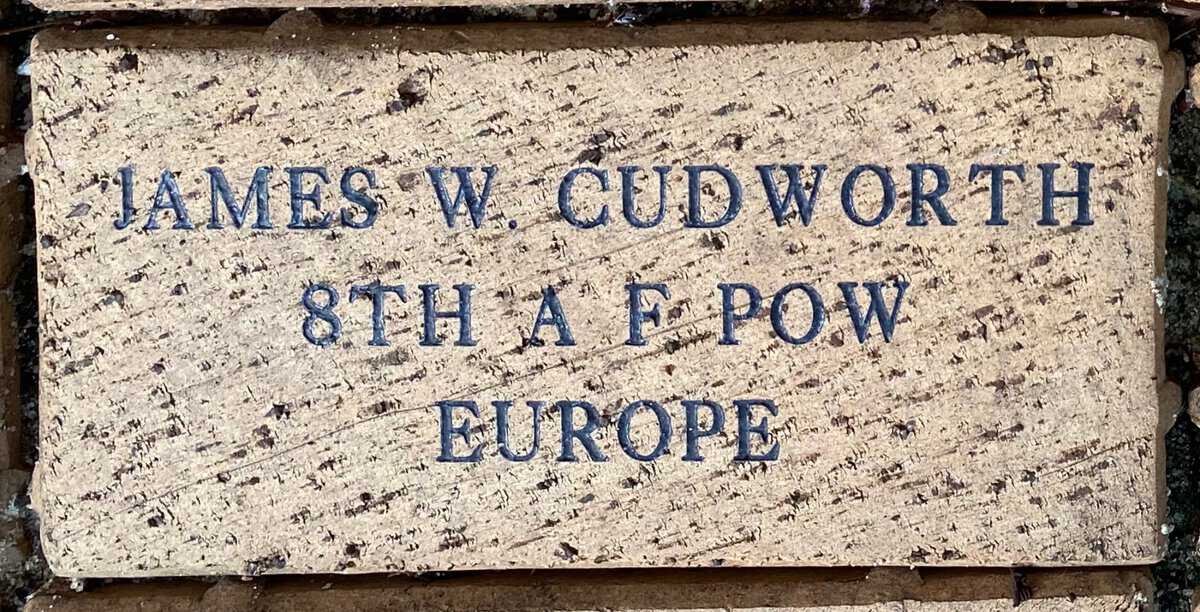 JAMES W. CUDWORTH
8TH A F POW
EUROPE